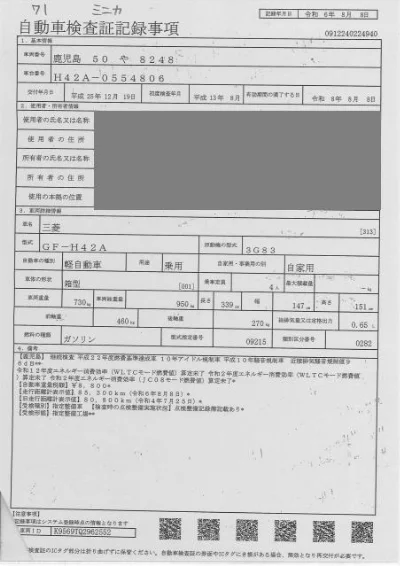 71 ミニカ
記録年月日 令和 6年 8月 8日
自動車検査証記録事項
0912240224940
1. 基本情報
車両番号 鹿児島 50 や 8248
車台番号 H42A-0554806
交付年月日 平成 25年 12月 19日 初度検査年月 平成 13年 9月 有効期間の満了する日 令和 8年 8月 8日
2. 使用者・所有者情報
使用者の氏名又は名称
使用者の住所
所有者の氏名又は名称
所有者の住所
使用の本拠の位置
3. 車両詳細情報
車名 三菱 [313]
型式 GF-H42A 原動機の型式 3G83
自動車の種別 軽自動車 用途 乗用 自家用・事業用の別 自家用
車体の形状 箱型 [001] 乗車定員 4人 最大積載量 -kg
車両重量 730kg 車両総重量 950kg 長さ 339cm 幅 147cm 高さ 151cm
前軸重 460kg 後軸重 270kg 総排気量又は定格出力 0.65 L
燃料の種類 ガソリン 型式指定番号 09215 類別区分番号 0282
4. 備考
【鹿児島】 継続検査 平成22年度燃費基準達成車 10年アイドル規制車 平成10年騒音規制車 近接排気騒音規制値9
6dB**
令和12年度エネルギー消費効率(WLTCモード燃費値)算定未了 令和2年度エネルギー消費効率(WLTCモード燃費値
)算定未了 令和2年度エネルギー消費効率(JC08モード燃費値)算定未了*
【自動車重量税額】¥8,800*
【走行距離計表示値】85,300km(令和6年8月8日)*
【旧走行距離計表示値】80,800km(令和4年7月25日)*
【受検種別】指定整備車 【検査時の点検整備実施状況】点検整備記録簿記載あり*
【受検形態】指定整備工場**
【注意事項】
記録事項はシステム登録時点の情報となります
車両ID K9569TQ2962552
検査証のICタグ部分は折り曲げずに保管ください。自動車検査証の券面やICタグにき損がある場合、無効となり再交付が必要です。